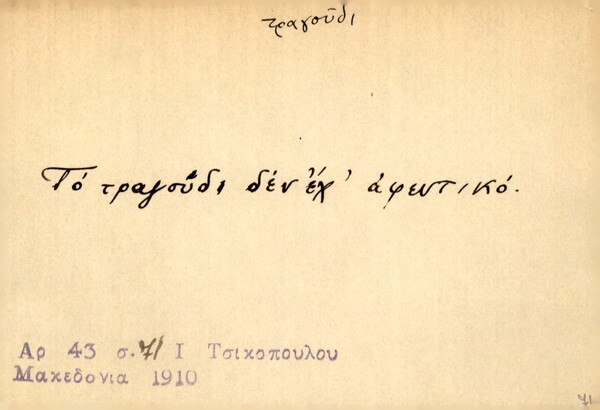 τραγοῦδι
Τό τραγοῦδι δέν ἔχ' ἀφεντικό.
Αρ 43 σ. 71 Ι Τσικοπουλου
Μακεδονια 1910
71